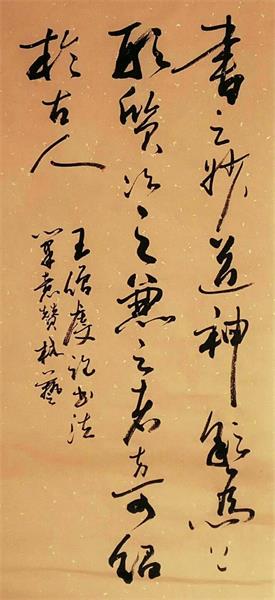 書之妙道神彩為上
形质次之兼之者方可紹
於古人
王僧虔論書法
筆意赞